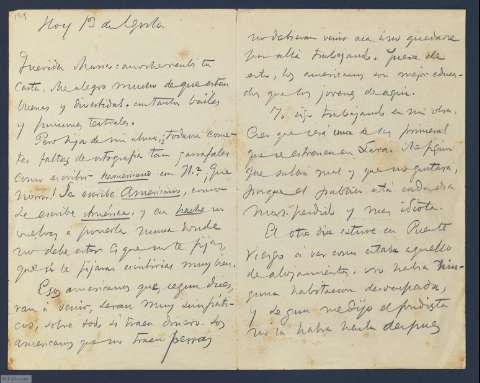 Hoy 13 de Agosto
Querida Nena: anoche recibí tu
carta. Me alegro mucho de que estéis
buenas y divertidas con tantos bailes
y funciones teatrales.
Pero hija de mi alma, ¡todavía come-
tes faltas de ortografía tan garrafales
como escribir hamericano con H.? ¡Que
horror! Se escribe Americano, como
se escribe América, y la hache no
vuelvas a ponerla nunca donde
no debe estar. Es que no te fijas
que si te fijaras escribirías muy bien.
Esos americanos que, según dices,
van a venir, serán muy simpáti-
cos, sobre todo si traen dinero. Los
americanos que no traen perras
no debieran venir acá sino quedarse
por allá trabajando. Fuera de
esto, los americanos son mejor educa-
dos que los jovenes de aquí.
Yo sigo trabajando en mi obra.
Creo que será una de las primeras
que se estrenen en Lara. Me figuro
que saldrá mal y que no gustará,
porque el público está cada día
mas perdido y mas idiota.
El otro día estuve en Puente
Viesgo a ver como estaba aquello
de alojamiento. No había nin-
guna habitación desocupada,
y según me dijo el fondista
no la habrá hasta después